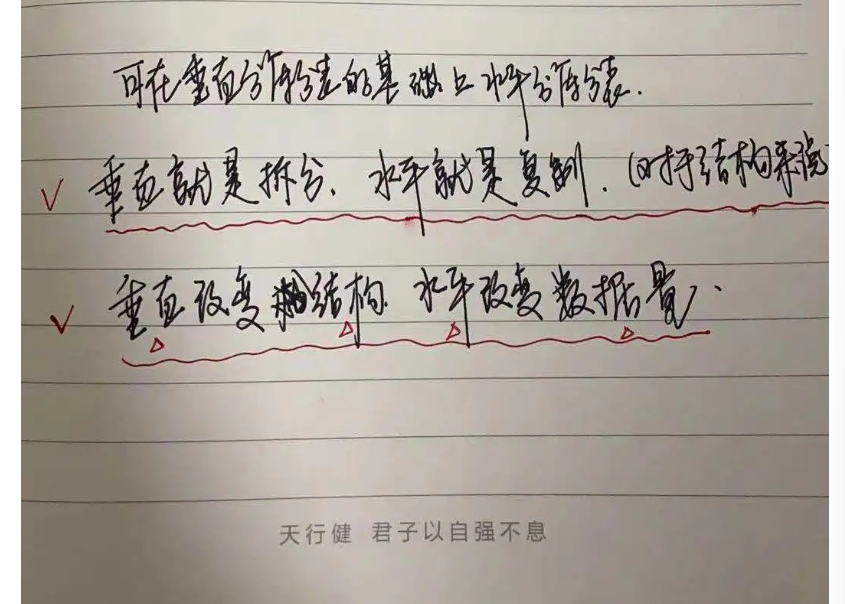 可在垂直分库分表的基础上水平分库分表.
√ 垂直就是拆分. 水平就是复制. (对于结构来说
√ 垂直改变结构 水平改变数据量.
天行健 君子以自强不息